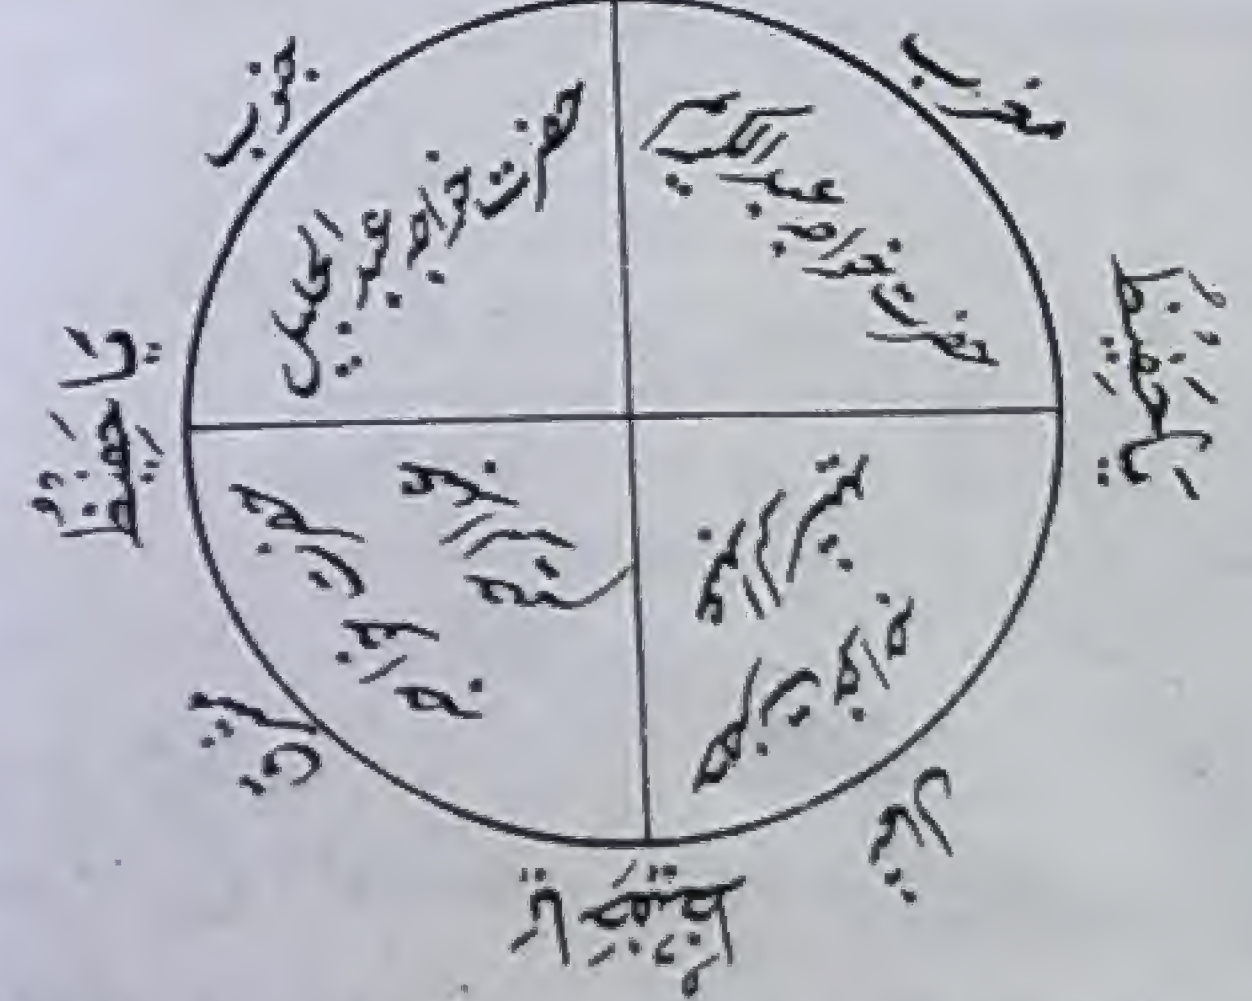 مغرب
حضرت خواجہ عبد الکریم
جنوب
حضرت خواجہ عبد الجلیل
یَا حَفِیظُ
یَا حَفِیظُ
حضرت خواجہ
مشرق
حضرت خواجہ
شمال
یَا حَفِیظُ